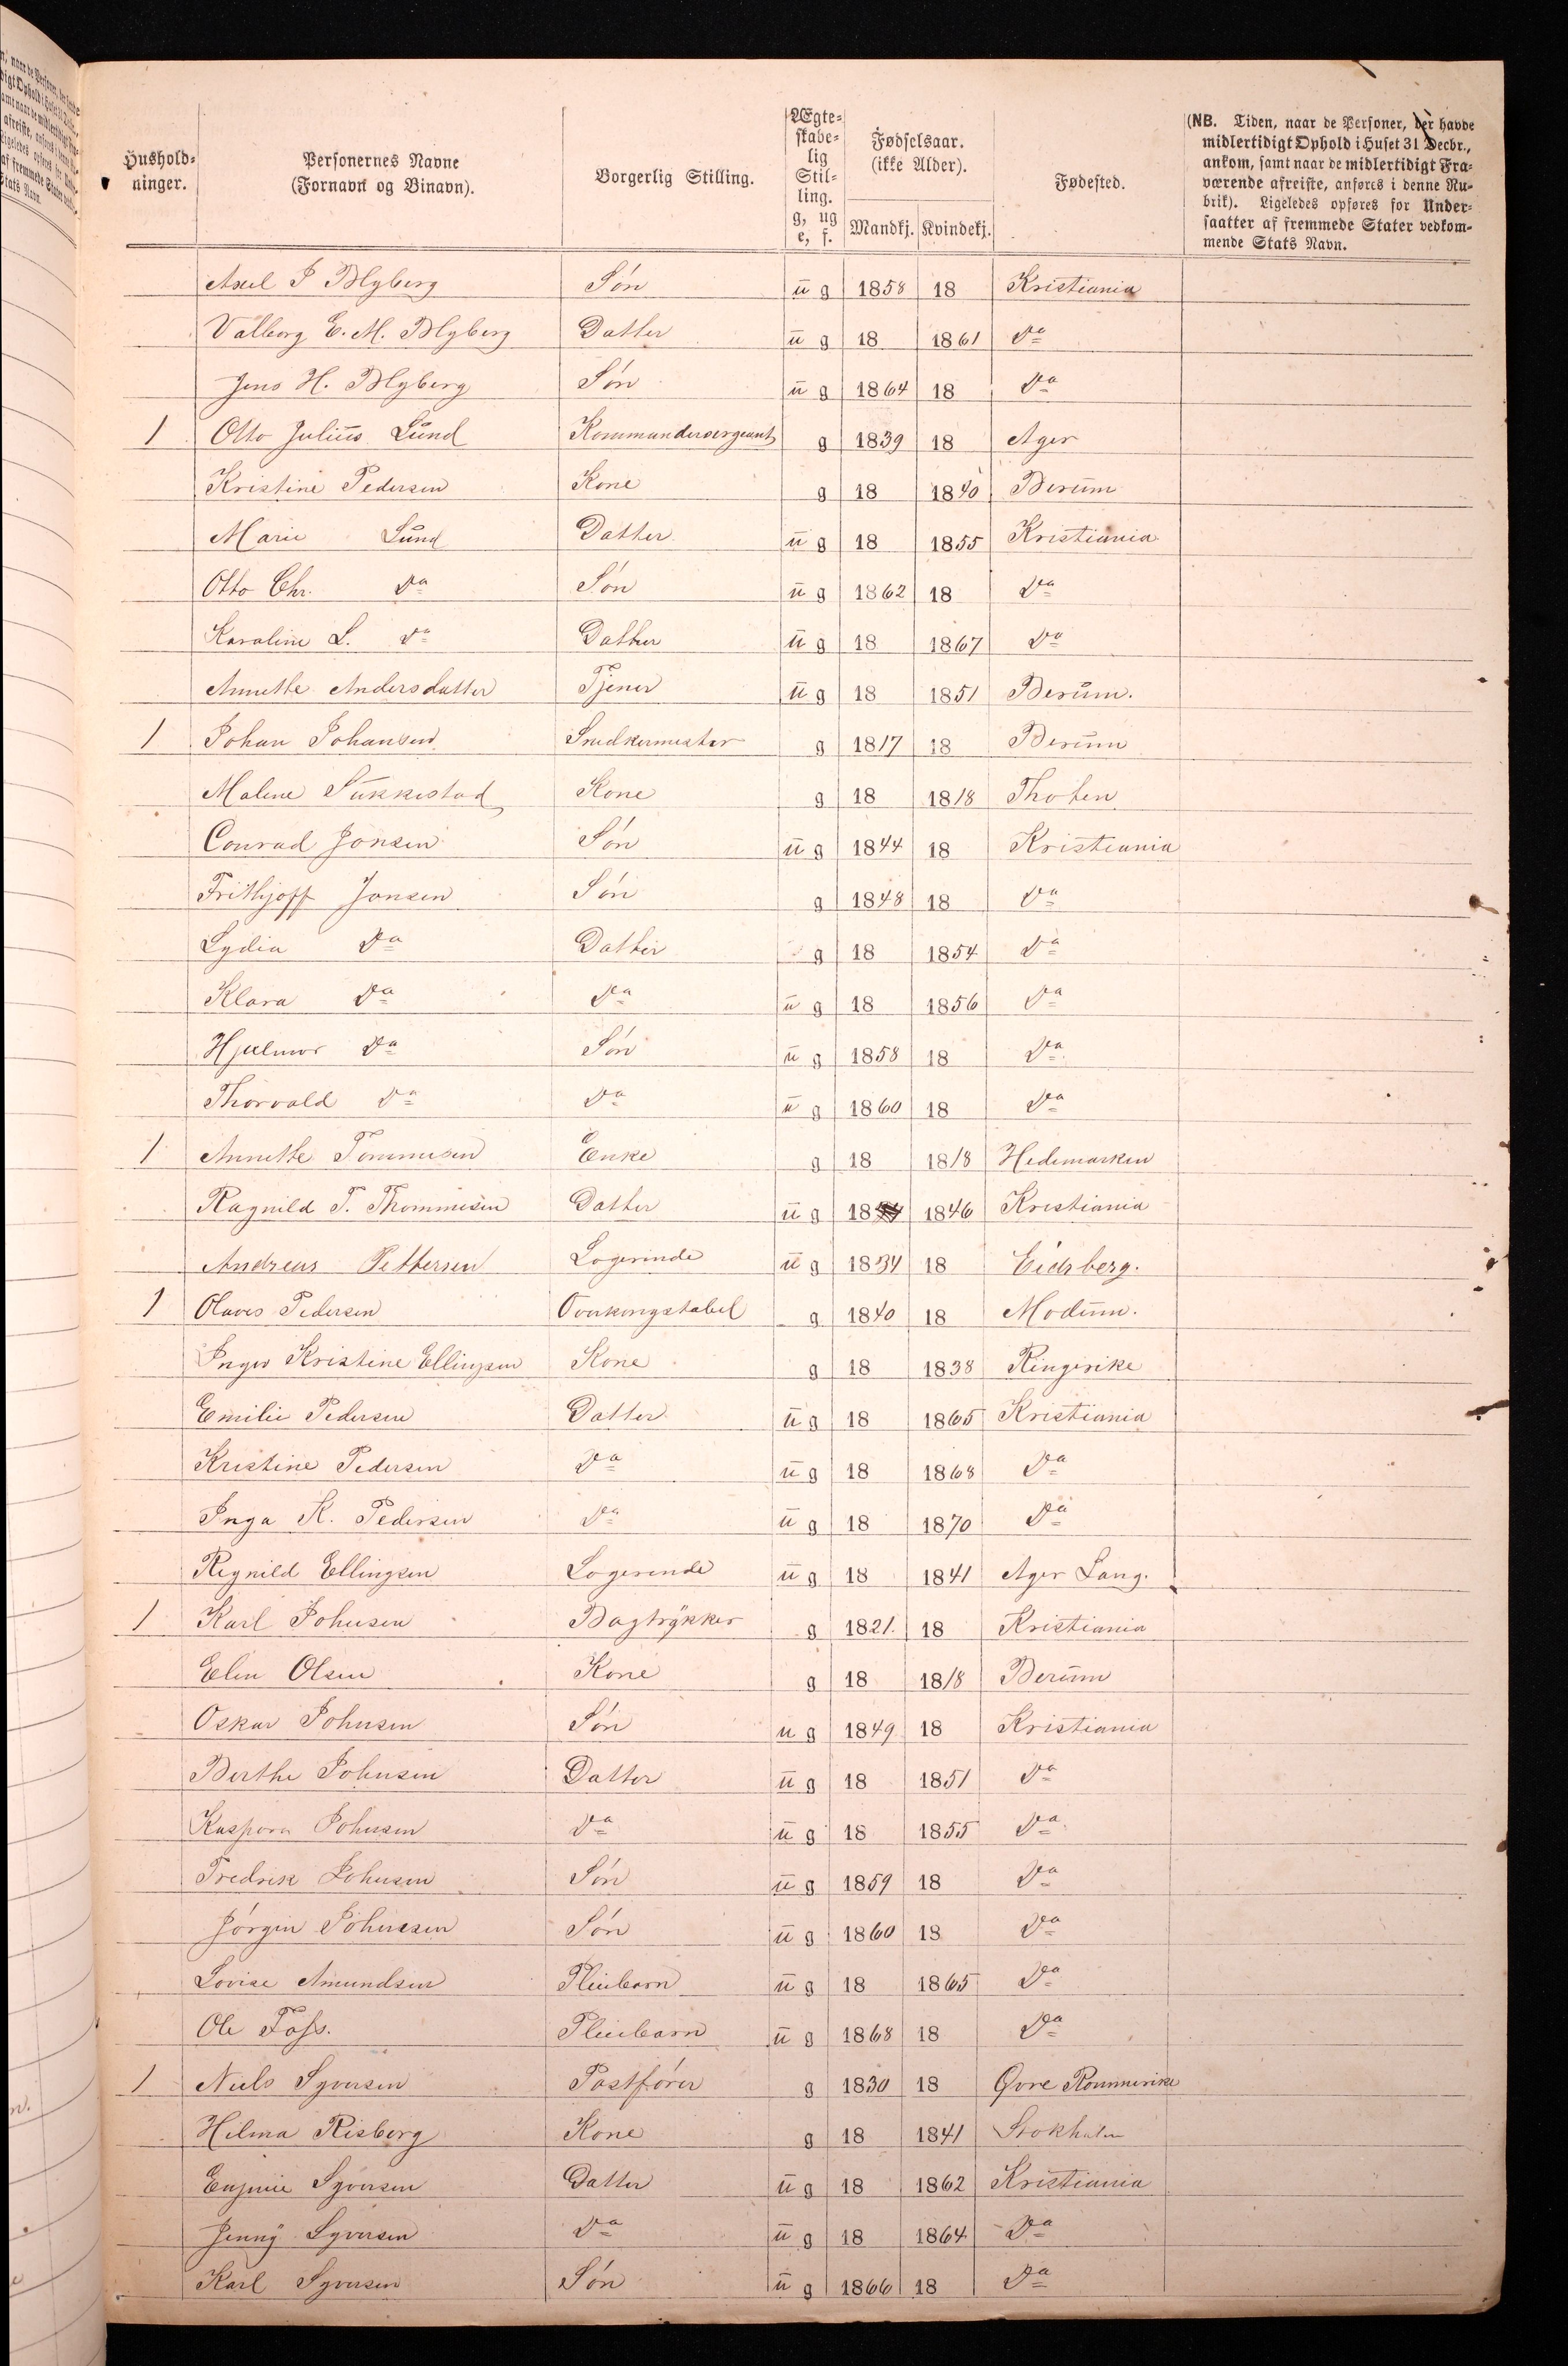 Hushold-
ninger.
Personernes Navne
(Fornavn og Binavn).
Borgerlig Stilling.
Ægte-
skabe-
lig
Stil-
ling.
g, ug
e, f.
Fødselsaar.
(ikke Alder).
Mandkj. Kvindekj.
Fødested.
(NB. Tiden, naar de Personer, der havde
midlertidigt Ophold i Huset 31 Decbr.,
ankom, samt naar de midlertidigt Fra-
værende afreiste, anføres i denne Ru-
brik). Ligeledes opføres for Under-
saatter af fremmede Stater vedkom-
mende Stats Navn.
Axel P Myberg Søn u g 1858 18 Kristiania
Valborg E. M. Myberg Datter u g 18 1861 Do
Jens H. Myberg Søn u g 1864 18 Do
1 Otto Julius Lund Kommandersergeant g 1839 18 Ager
Kristine Pedersen Kone g 18 1840 Berum
Marie Lund Datter u g 18 1855 Kristiania
Otto Chr. Do Søn u g 1862 18 Do
Karaline L. Do Datter u g 18 1867 Do
Annette Andersdatter Tjener u g 18 1851 Berum.
1 Johan Johansen Snedkermester g 1817 18 Berum
Malene Sukkestad Kone g 18 1818 Thoten
Conrad Jonsen Søn u g 1844 18 Kristiania
Frithjoff Jonsen Søn g 1848 18 Do
Lydia Do Datter g 18 1854 Do
Klara Do Do u g 18 1856 Do
Hjelmor Do Søn u g 1858 18 Do
Thorvald Do Do u g 1860 18 Do
1 Annette Tommesen Enke g 18 1818 Hedemarken
Ragnild T. Thommesen Datter u g 18 1846 Kristiania
Andreas Pettersen Logerende u g 1834 18 Eidsberg.
1 Olaves Pedersen Overkongstabel g 1840 18 Modum.
Inger Kristine Ellingsen Kone g 18 1838 Ringerike
Emilie Pedersen Datter u g 18 1865 Kristiania
Kristine Pedersen Do u g 18 1868 Do
Inga K. Pedersen Do u g 18 1870 Do
Regnild Ellingsen Logerende u g 18 1841 Ager Lang.
1 Karl Johnsen Bogtrykker g 1821. 18 Kristiania
Elen Olsen Kone g 18 1818 Berum
Oskar Johnsen Søn u g 1849 18 Kristiania
Berthe Johnsen Datter u g 18 1851 Do
Kaspora Johnsen Do u g 18 1855 Do
Fredrik Johnsen Søn u g 1859 18 Do
Jørgen Johnssen Søn u g 1860 18 Do
Lovise Amundsen Pleiebarn u g 18 1865 Do
Ole Foss. Pleiebarn u g 1868 18 Do
1 Niels Syversen Postfører g 1830 18 Øvre Rommerike
Hilma Risberg Kone g 18 1841 Stokholm
Eugenie Syversen Datter u g 18 1862 Kristiania
Jenny Syversen Do u g 18 1864 Do
Karl Syversen Søn u g 1866 18 Do